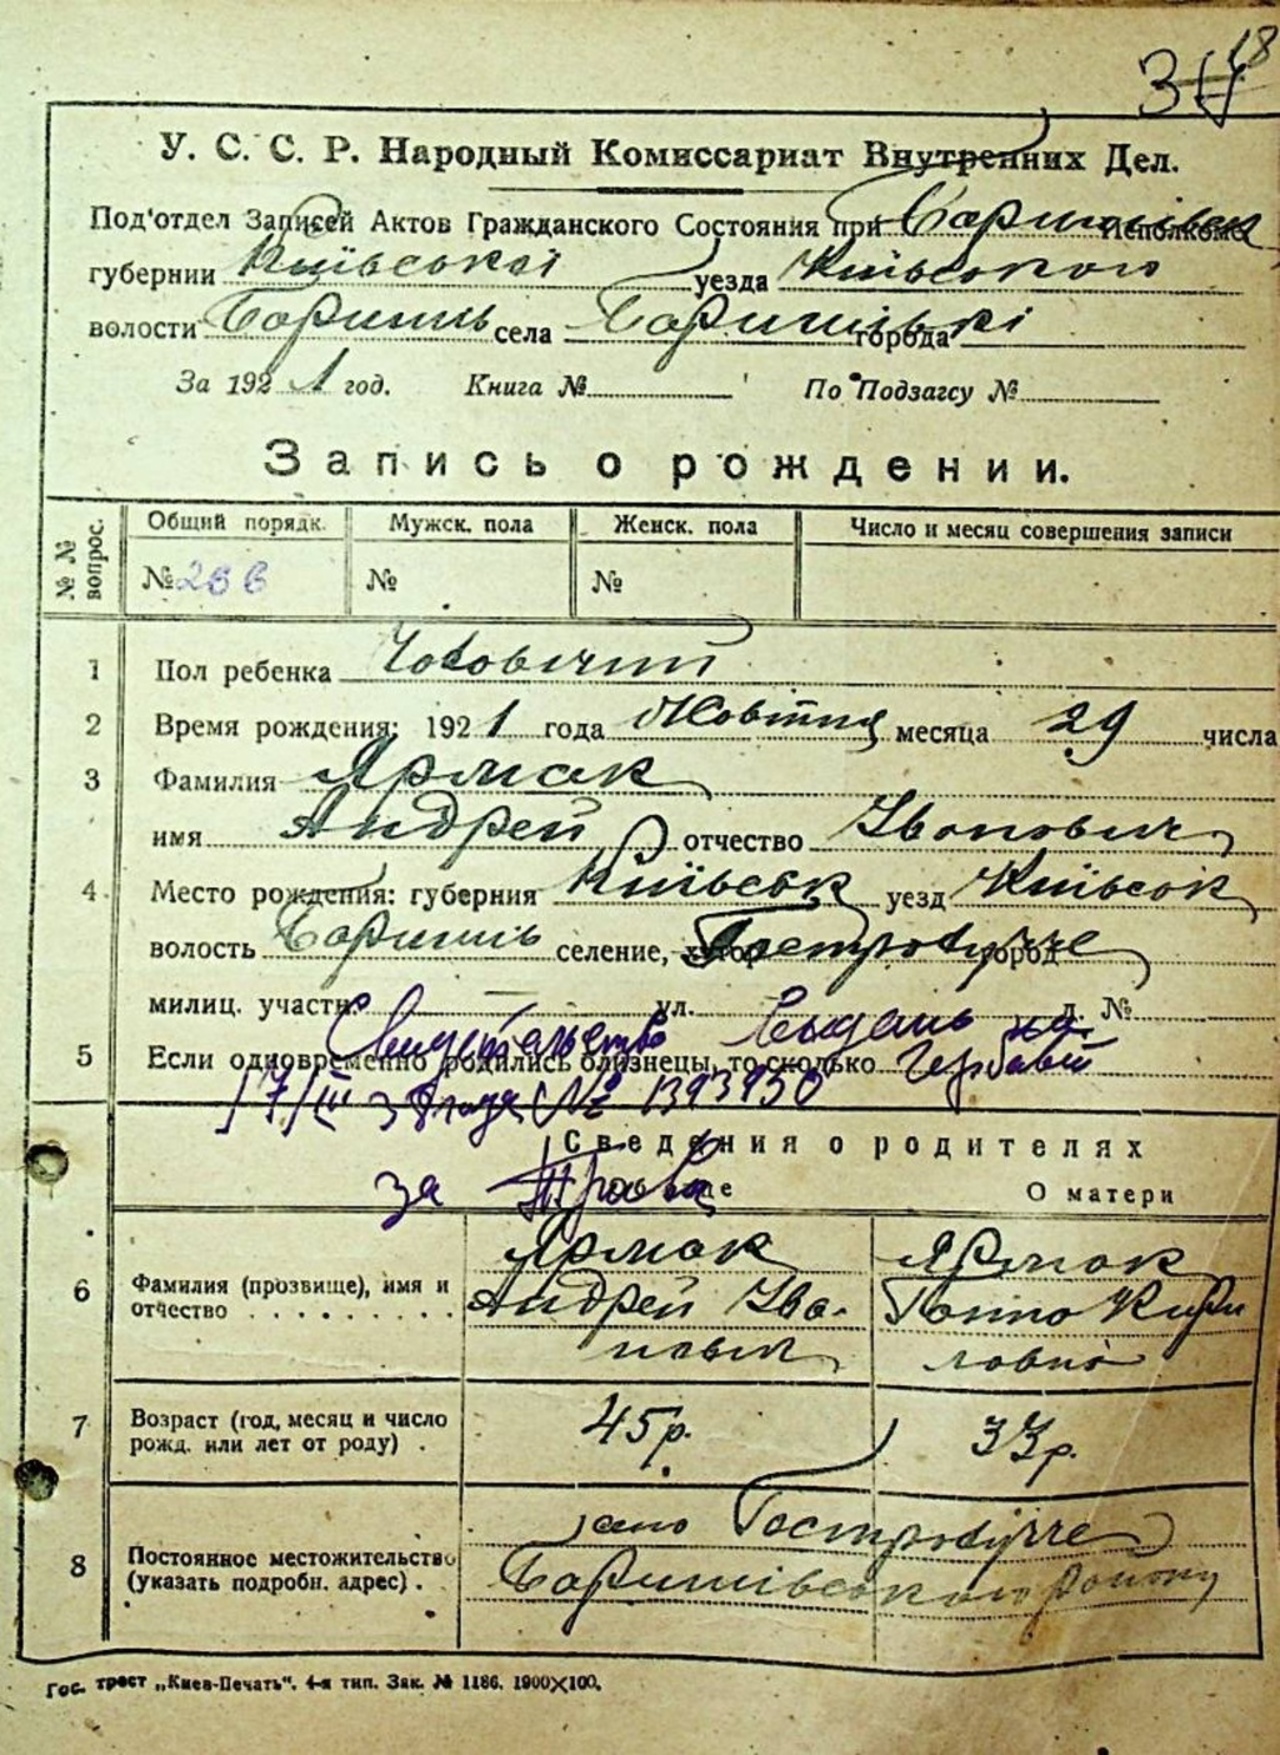 18
У. С. С. Р. Народный Комиссариат Внутренних Дел.
Под'отдел Записей Актов Гражданского Состояния при Баришівськ Исполкоме
губернии Київської уезда Київського
волости Баришів села Баришівкі города
За 1921 год. Книга № По Подзагсу №
Запись о рождении.
№ № вопрос. Общий порядк. Мужск. пола Женск. пола Число и месяц совершения записи
№ 266 № №
1 Пол ребенка Чоловічий
2 Время рождения: 1921 года Жовтня месяца 29 числа
3 Фамилия Ярмак
имя Андрей отчество Іванович
4 Место рождения: губерния Київськ уезд Київськ
волость Баришів селение, хутор Гостролуччє город
милиц. участк. — ул. д. №
Свидетельство выдано на
5 Если одновременно родились близнецы, то сколько
17/III 38 года № 1393930
Сведения о родителях
за
О матери
6 Фамилия (прозвище), имя и отчество . . . . . . . . . Ярмак Ярмак
Андрей Іва- Ганна Кири
нович ловна
7 Возраст (год, месяц и число рожд. или лет от роду) . 45р. 33р.
8 Постоянное местожительство (указать подробн. адрес) . село Гостролуччє
Баришівського району
Гос. трест „Киев-Печать“. 4-я тип. Зак. № 1186. 1900×100.